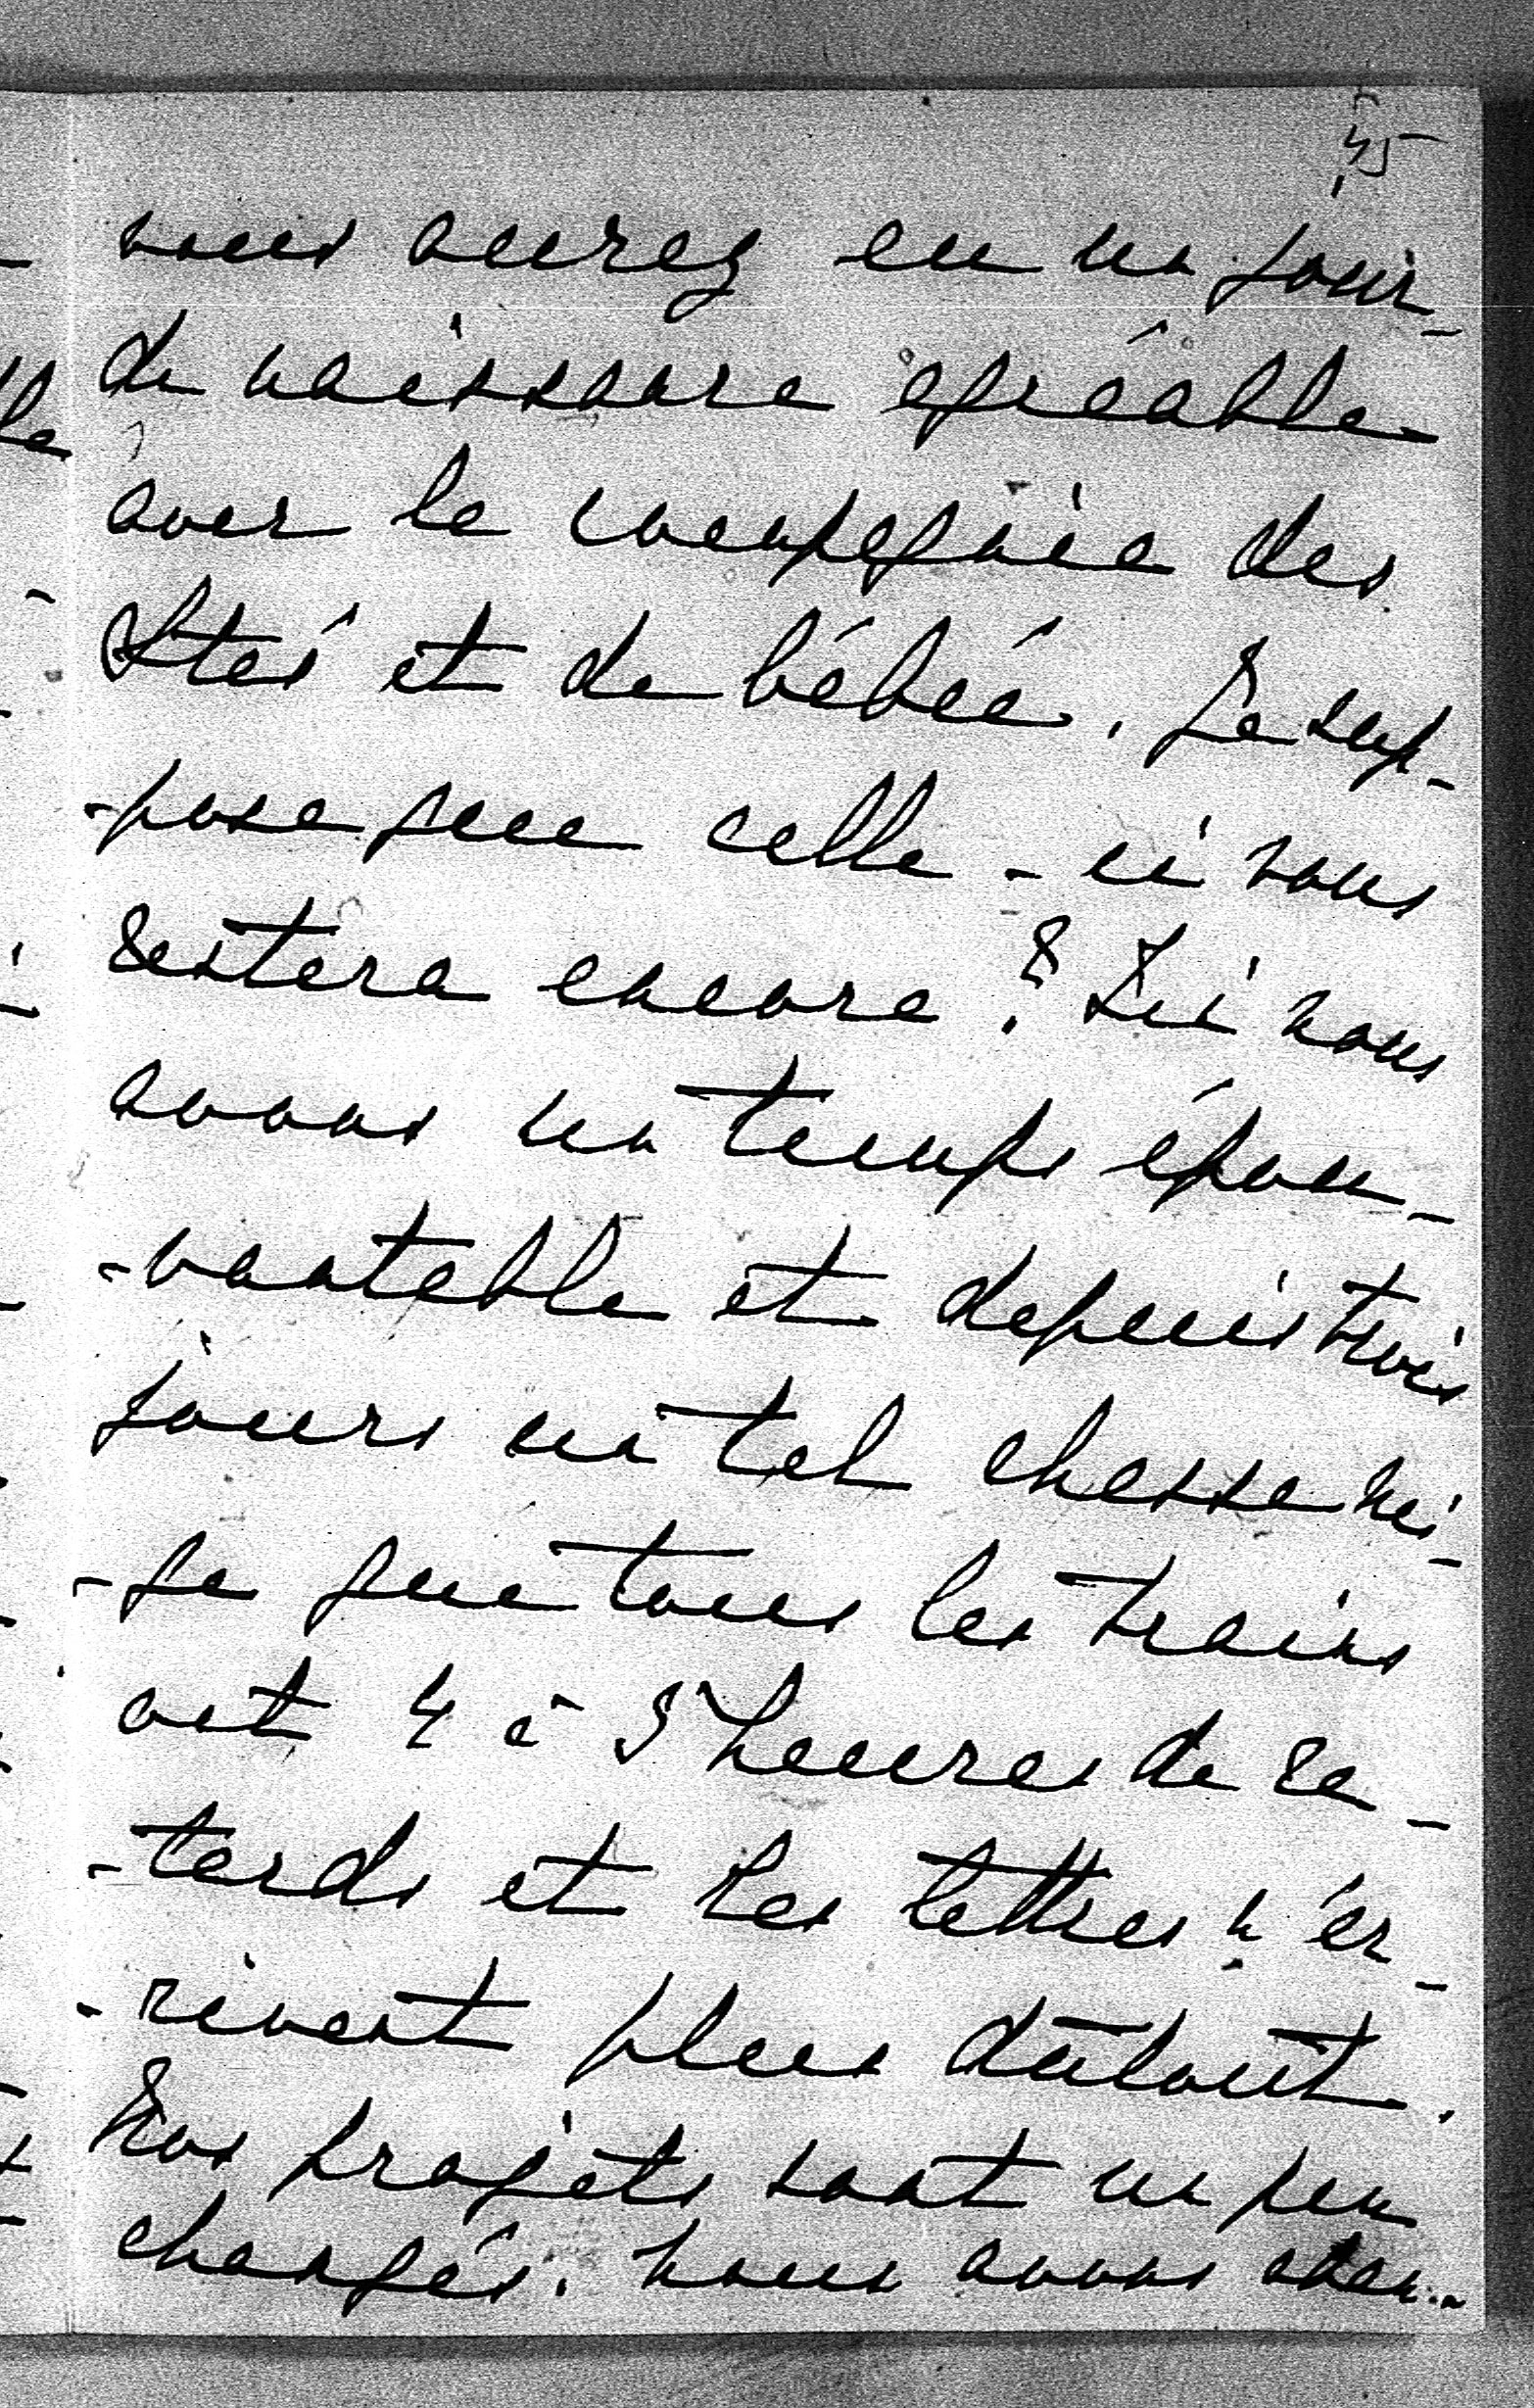 45
vous aurez eu un jour
de naissance agréable
avec la compagnie des
et de bébée. Je sup-
-pose que celle-ci vous
restera encore? Ici nous
avons un temps épou-
-vantable et depuis trois
jours un tel chasse nei-
-ge que tous les trains
ont 4 à 5 heures de re-
-tards et les lettres n'ar-
-rivent plus dutout.
Nos projets sont un peu
changés. nous avons